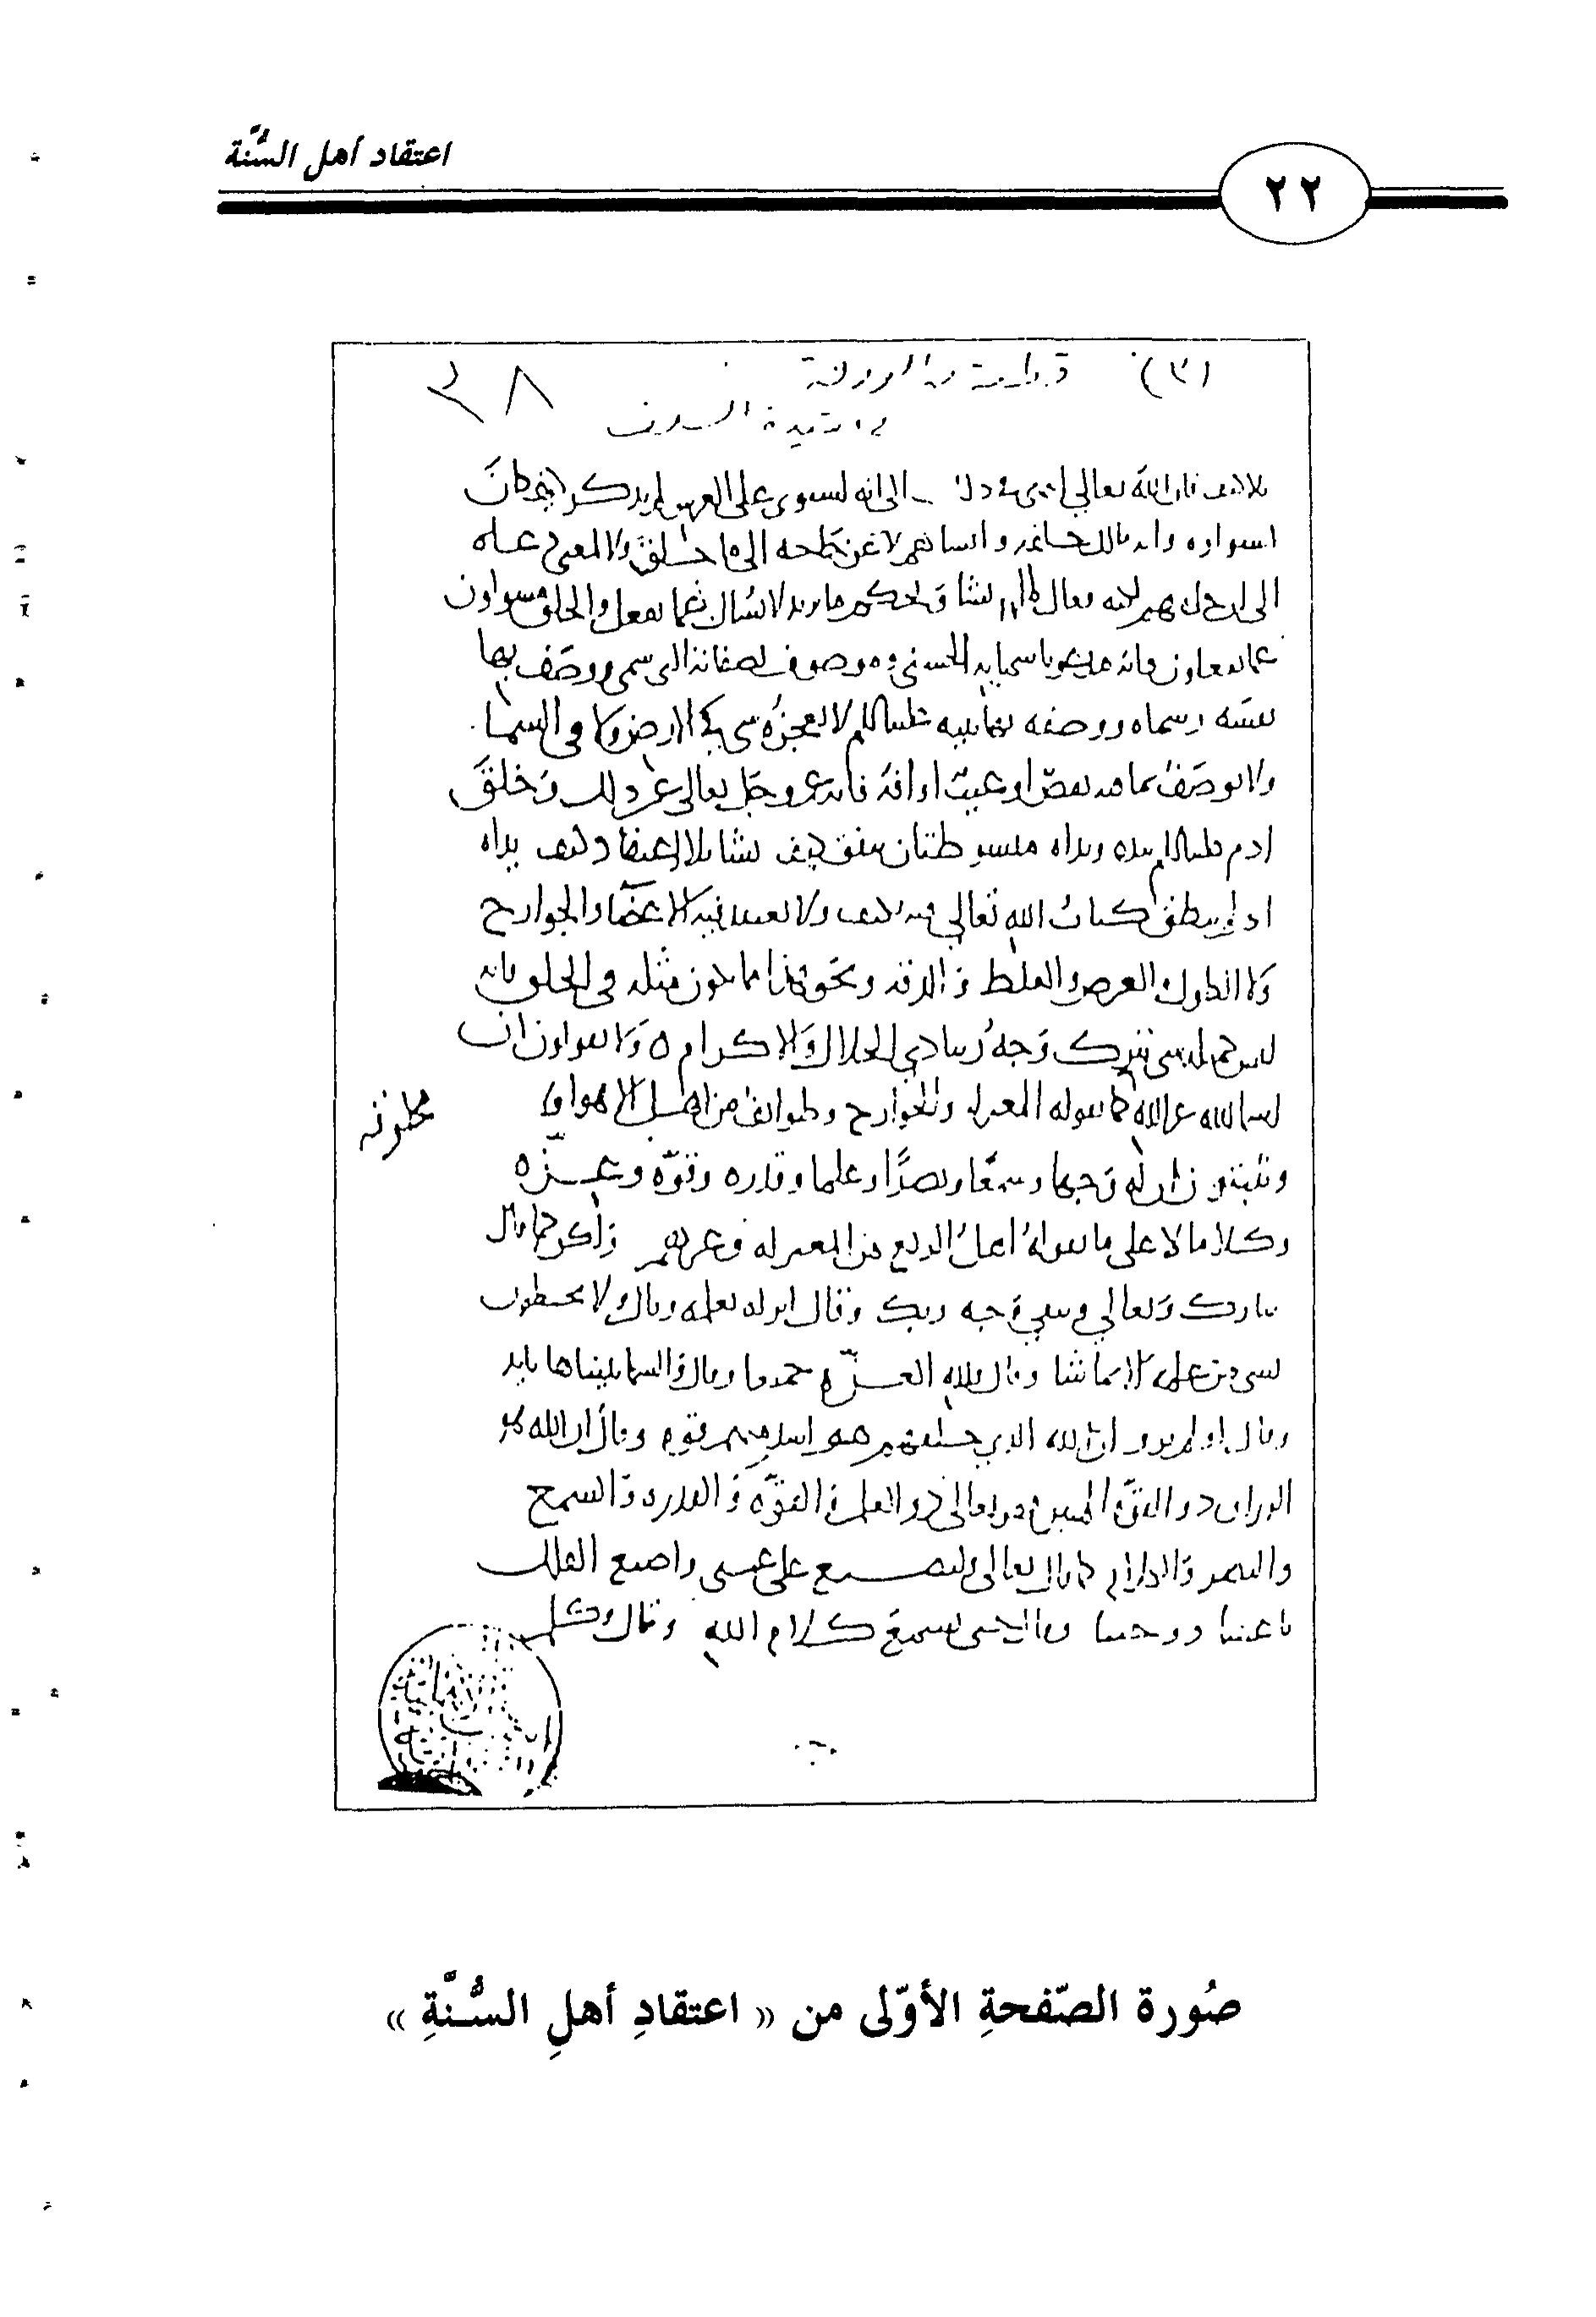 اعتقاد أهل السُّنة
٢٢
(٣)
٣٨
بلا كيف فان الله تعالى انتهى في ذلك الى انه استوى على العرش ولم يذكر كيف كان
استواوه وانه مالك خلقه وانشاهم لا عن حاجه الى ما خلق ولا لمعنى دعاه
الى ان خلقهم لكنه فعال لما يشا ويحكم ما يريد لا يسال عما يفعل والخلق مسولون
عما يفعلون وانه مدعو باسمايه الحسنى وموصوف بصفاته التي سمى ووصف بها
نفسه وسماه ووصفه بها نبيه عليه السلم لا يعجزه شي في الارض ولا في السما
ولا يوصف بما فيه نقص او عيب او افة فانه عز وجل تعالى عن ذلك وخلق
ادم عليه السلم بيده ويداه مبسوطتان ينفق كيف يشا بلا اعتقاد كيف يداه
اذ لم ينطق كتاب الله تعالى فيه بكيف ولا يعتقد فيه الاعضا والجوارح
ولا الطول والعرض والغلظ والدقه ونحو هذا مما يكون مثله في الخلق فانه
ليس كمثله شي تبارك وجه ربنا ذي الجلال والاكرام ٥ ولا يقولون ان
اسما الله غير الله كما يقوله المعتزله والخوارج وطوائف من اهل الاهوا
مخلوقه
ويثبتون ان له وجها وسمعا وبصرا وعلما وقدره وقوّه وعزّه
وكلاما لا على ما يقوله اهل الزيغ من المعتزله وغيرهم ولكن كما قال
تبارك وتعالى ويبقى وجه ربك وقال انزله بعلمه وقال ولا يحيطون
بشي من علمه الا بما شا وقال فلله العزّه جميعا وقال والسما بنيناها بايد
وقال اولم يروا ان الله الذي خلقهم هو اشد منهم قوه وقال ان الله هو
الرزاق ذو القوّه المتين فهو تعالى ذو العلم والقوّه والقدره والسمع
والبصر والكلام كما قال تعالى ولتصنع على عيني واصنع الفلك
باعيننا ووحينا وقال حتى يسمع كلام الله وقال وكلم
صُورة الصّفحةِ الأوّلى من « اعتقادِ أهلِ السُّنَّةِ »